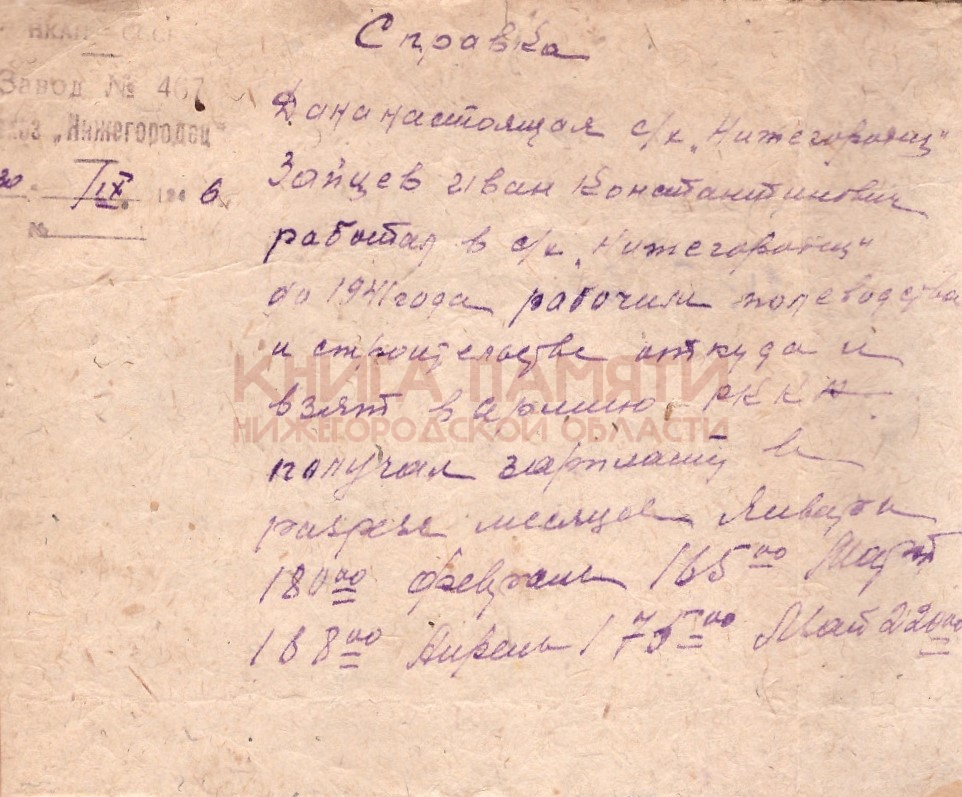 Справка
НКАП СССР
Завод № 467
хоз „Нижегородец"
30 IX 1946
№
Дана настоящая с/х „Нижегородец"
Зайцев Иван Константинович
работал в с/х „Нижегородец"
до 1941 года рабочим полеводства
и строительстве откуда и
взят в армию РККА
получал зарплату в
разрезе месяцев Январь
180 00 февраль 165 00 Март
188 00 Апрель 175 00 Май 220 00
КНИГА ПАМЯТИ
НИЖЕГОРОДСКОЙ ОБЛАСТИ